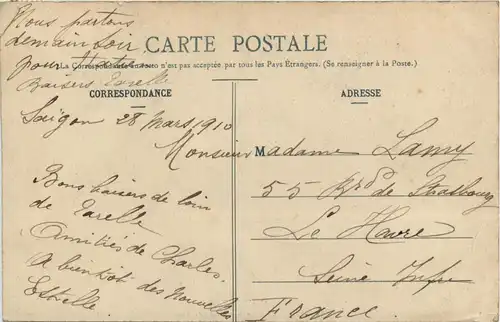 Nous partons
demain soir
pour
Baisers
CARTE POSTALE
La Correspondance au recto n'est pas acceptée par tous les Pays Étrangers. (Se renseigner à la Poste.)
CORRESPONDANCE
Saïgon 28 Mars 1910
Bons baisers de loin
de
Amitiés de Charles.
A bientôt des Nouvelles
Estelle
ADRESSE
Monsieur Madame Lamy
55 Bd de Strasbourg
Le Havre
Seine Infre
France.